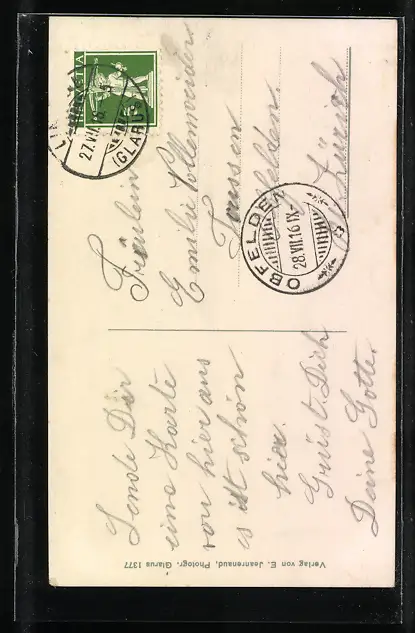 Sende Dir
eine Karte
von hier aus
es ist schön
hier.
Grüst Dich
Deine Gotte.
Fräulein
Emilie Vollenweider
Toussen
Obfelden.
Zürich
HELVETIA
5
27.VII.
(GLARUS)
OBFELDEN
28.VII.16 IX-
Verlag von E. Jeanrenaud, Photogr. Glarus 1377